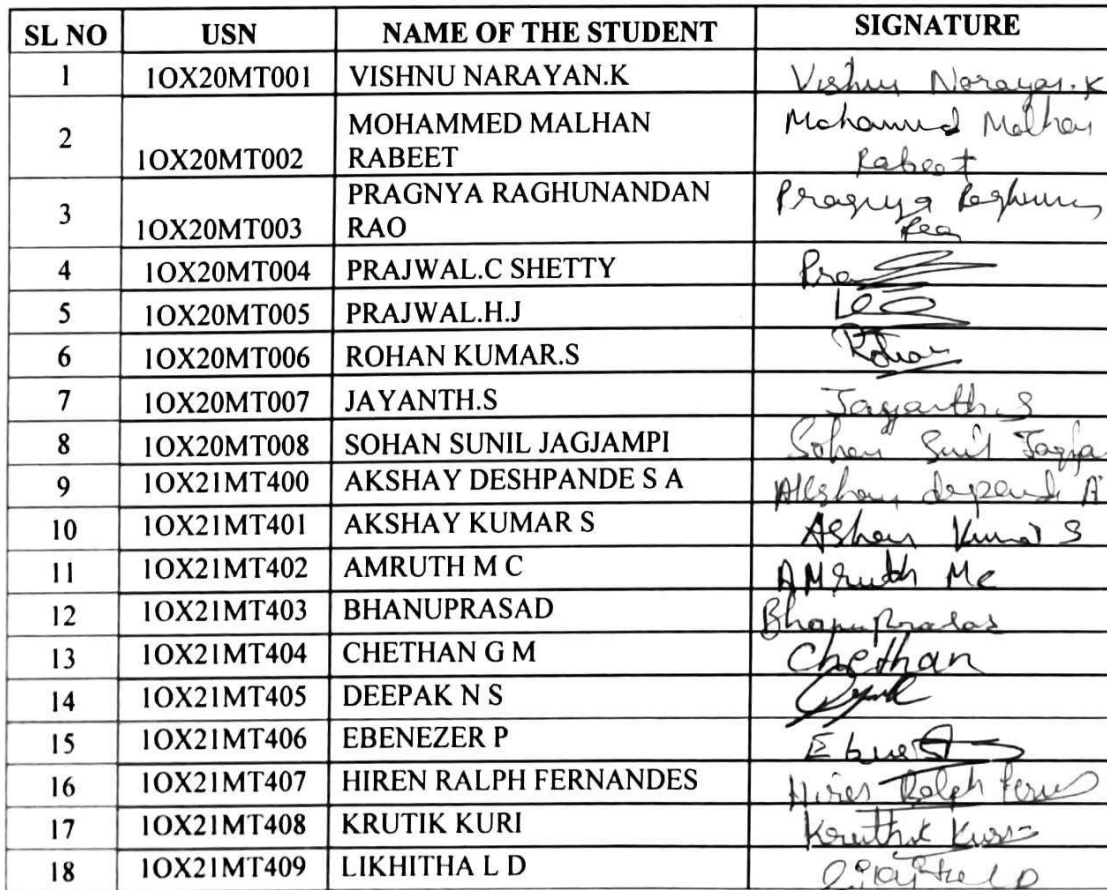 SL NO USN NAME OF THE STUDENT SIGNATURE
1 1OX20MT001 VISHNU NARAYAN.K Vishnu Narayan.K
2 1OX20MT002 MOHAMMED MALHAN Mohammed Malhan
RABEET Rabeet
3 1OX20MT003 PRAGNYA RAGHUNANDAN Pragnya
RAO
4 1OX20MT004 PRAJWAL.C SHETTY
5 1OX20MT005 PRAJWAL.H.J
6 1OX20MT006 ROHAN KUMAR.S Rohan
7 1OX20MT007 JAYANTH.S Jayanth.S
8 1OX20MT008 SOHAN SUNIL JAGJAMPI Sohan Sunil
9 1OX21MT400 AKSHAY DESHPANDE S A
10 1OX21MT401 AKSHAY KUMAR S Kumar S
11 1OX21MT402 AMRUTH M C AMruth Mc
12 1OX21MT403 BHANUPRASAD Bhanuprasad
13 1OX21MT404 CHETHAN G M Chethan
14 1OX21MT405 DEEPAK N S
15 1OX21MT406 EBENEZER P
16 1OX21MT407 HIREN RALPH FERNANDES Hiren Ralph
17 1OX21MT408 KRUTIK KURI
18 1OX21MT409 LIKHITHA L D